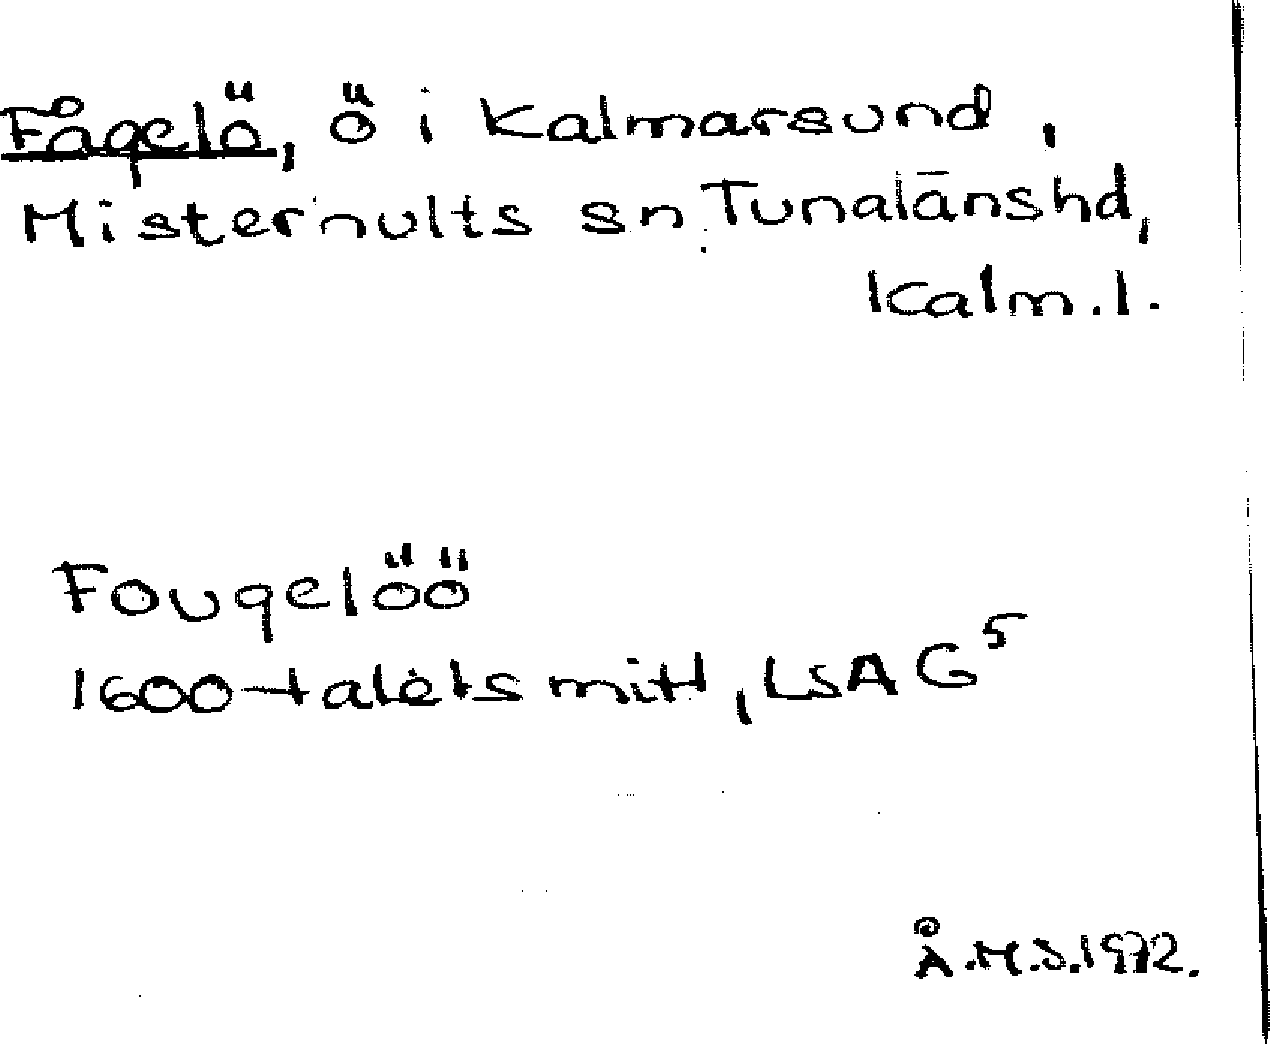 Fågelö, ö i Kalmarsund,
Misterhults sn Tunalänshd,
Kalm.l.
Fougelöö
1600-talets mitt, LSA G5
Å.M.S. 1972.